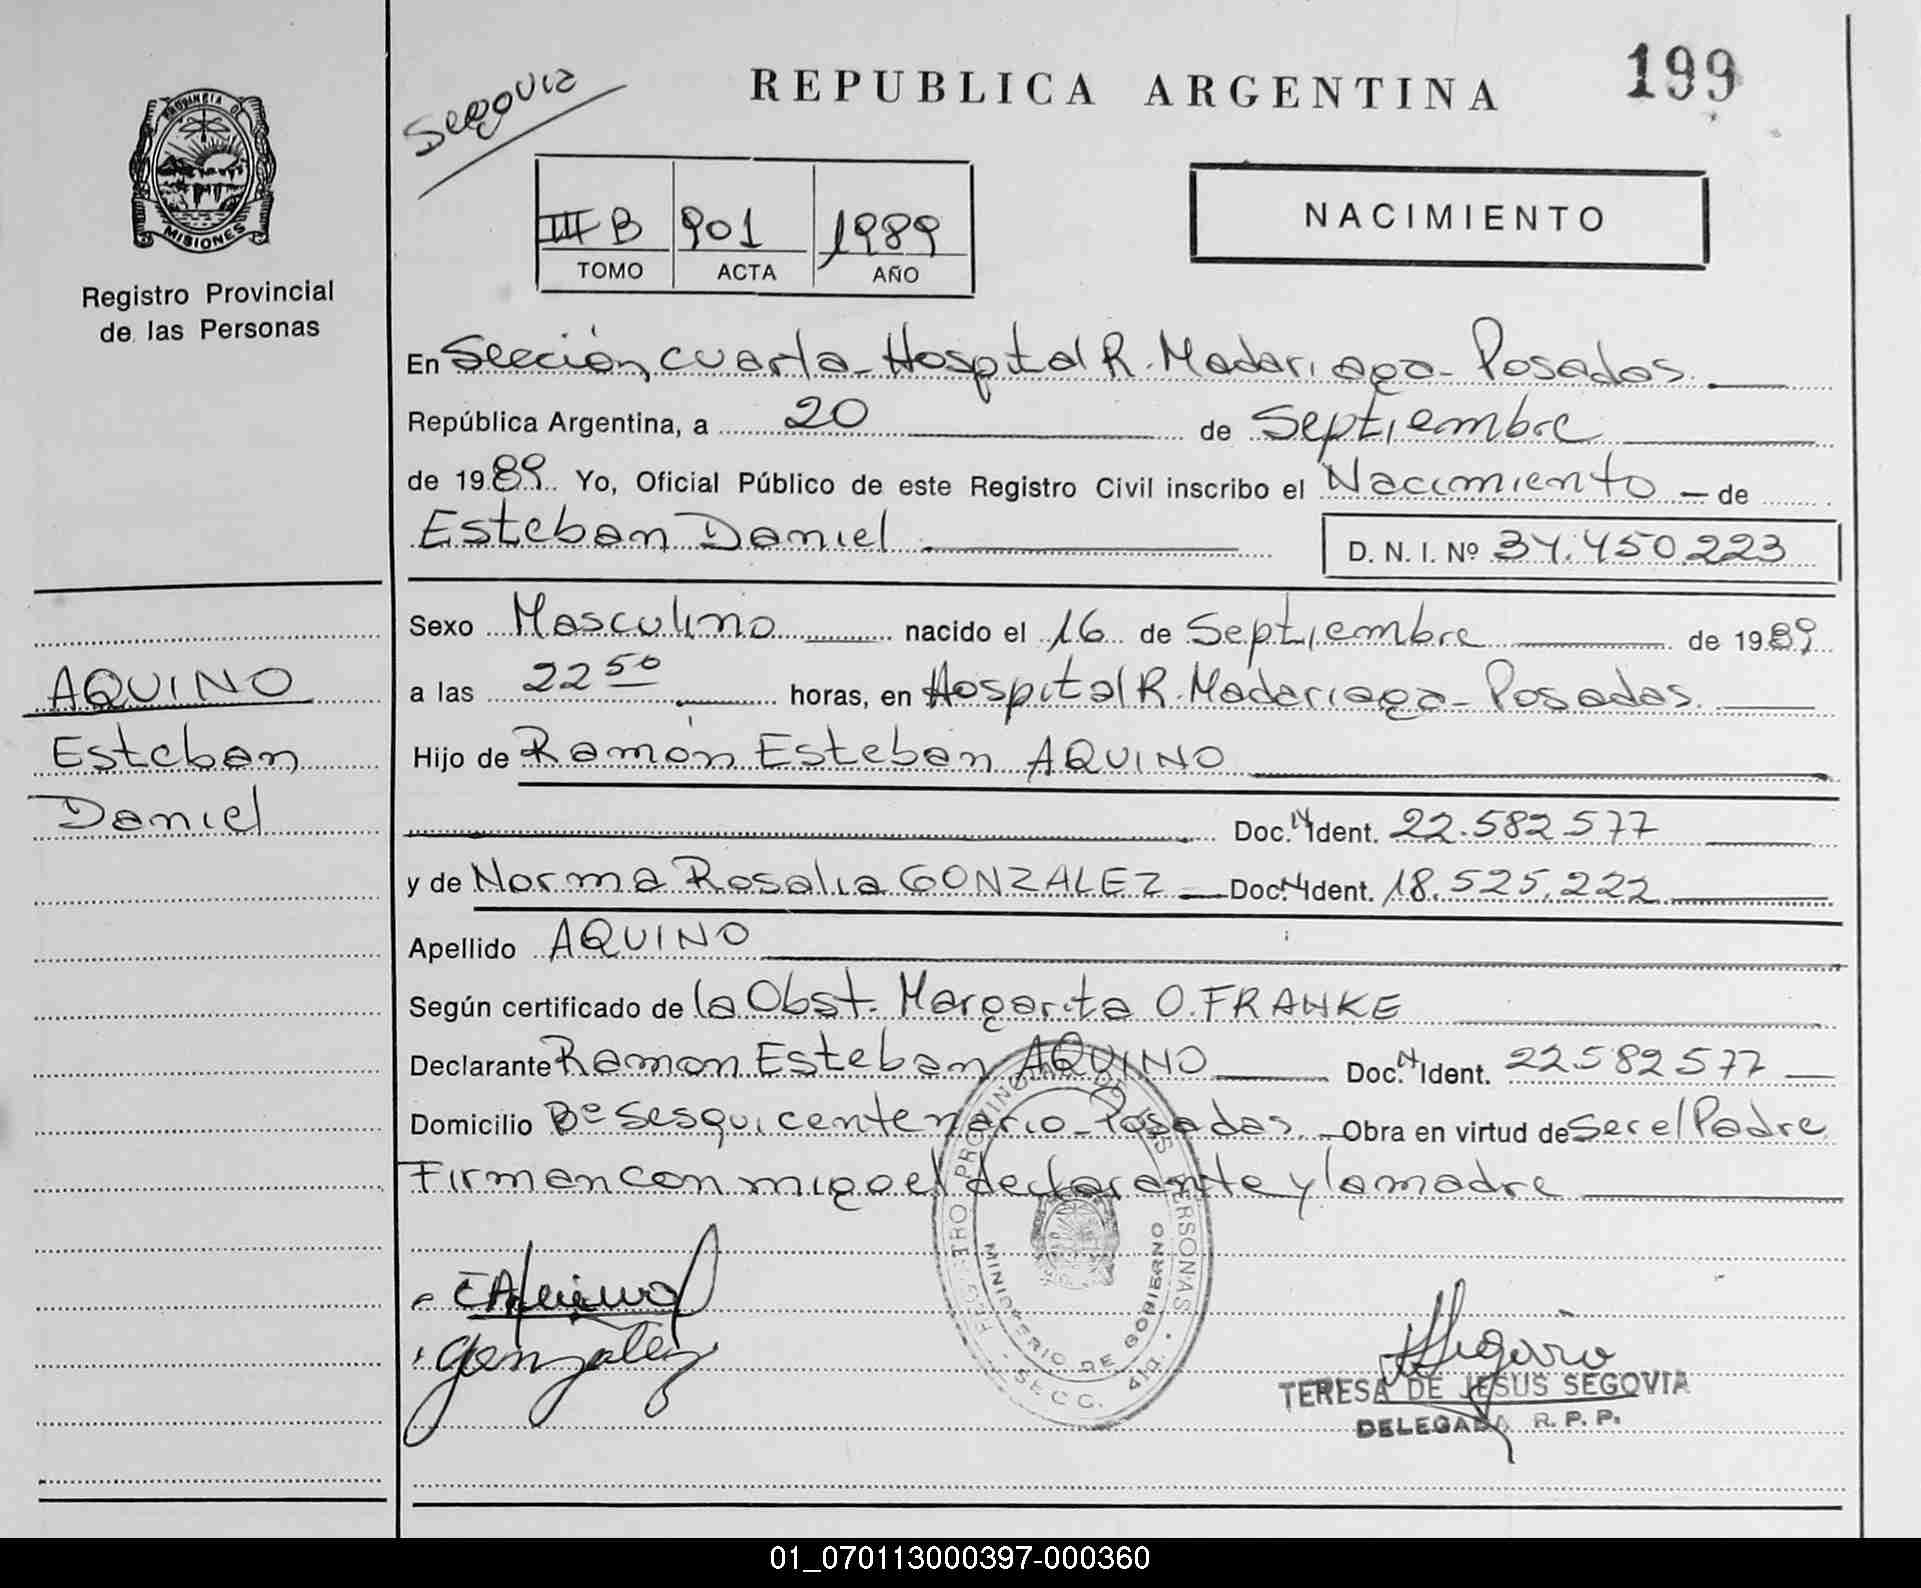 REPUBLICA ARGENTINA
199
Segovia
PROVINCIA DE
MISIONES
Registro Provincial
de las Personas
III B 901 1989
TOMO ACTA AÑO
NACIMIENTO
En Sección cuarta - Hospital R. Madariaga - Posadas.
República Argentina, a 20 de Septiembre
de 1989. Yo, Oficial Público de este Registro Civil inscribo el Nacimiento - de
Esteban Daniel D. N. I. Nº 34.450.223
Sexo Masculino nacido el 16 de Septiembre de 1989
a las 22 50 horas, en Hospital R. Madariaga - Posadas.
Hijo de Ramón Esteban AQUINO
Doc. N Ident. 22.582577
y de Norma Rosalia GONZALEZ - Doc. N Ident. 18.525.222
Apellido AQUINO
Según certificado de la Obst. Margarita O. FRANKE
Declarante Ramon Esteban AQUINO Doc. N Ident. 22582577
Domicilio Bº Sesquicentenario - Posadas. - Obra en virtud de Ser el Padre
Firman conmigo el declarante y la madre
AQUINO
Esteban
Daniel
REGISTRO PROVINCIAL DE LAS PERSONAS
MINISTERIO DE GOBIERNO
SECC. 4ta.
Gonzalez
Segovia
TERESA DE JESUS SEGOVIA
DELEGADA R. P. P.
01_070113000397-000360